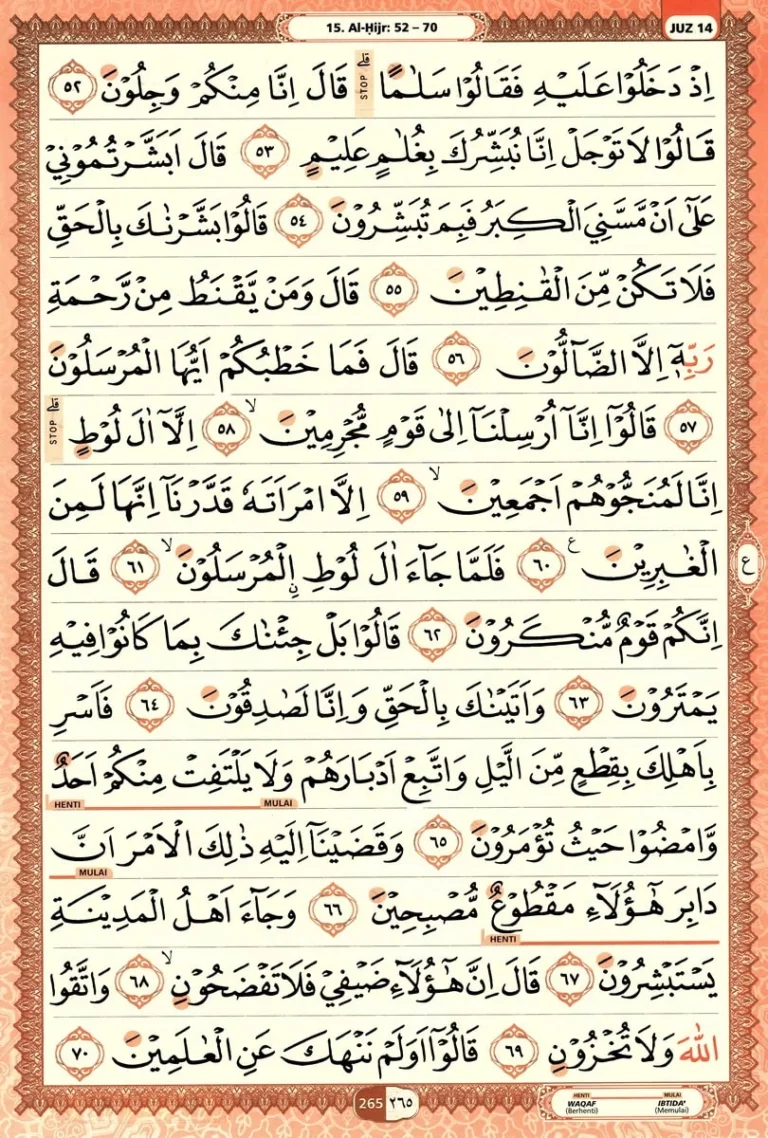 15. Al-Ḥijr: 52 – 70
JUZ 14
اِذْ دَخَلُوْا عَلَيْهِ فَقَالُوْا سَلٰمًاۗ قَالَ اِنَّا مِنْكُمْ وَجِلُوْنَ ٥٢
قَالُوْا لَا تَوْجَلْ اِنَّا نُبَشِّرُكَ بِغُلٰمٍ عَلِيْمٍ ٥٣ قَالَ اَبَشَّرْتُمُوْنِيْ
عَلٰٓى اَنْ مَّسَّنِيَ الْكِبَرُ فَبِمَ تُبَشِّرُوْنَ ٥٤ قَالُوْا بَشَّرْنٰكَ بِالْحَقِّ
فَلَا تَكُنْ مِّنَ الْقٰنِطِيْنَ ٥٥ قَالَ وَمَنْ يَّقْنَطُ مِنْ رَّحْمَةِ
رَبِّهٖٓ اِلَّا الضَّاۤلُّوْنَ ٥٦ قَالَ فَمَا خَطْبُكُمْ اَيُّهَا الْمُرْسَلُوْنَ
٥٧ قَالُوْٓا اِنَّآ اُرْسِلْنَآ اِلٰى قَوْمٍ مُّجْرِمِيْنَۙ ٥٨ اِلَّآ اٰلَ لُوْطٍۗ
STOP
STOP
اِنَّا لَمُنَجُّوْهُمْ اَجْمَعِيْنَۙ ٥٩ اِلَّا امْرَاَتَهٗ قَدَّرْنَآ اِنَّهَا لَمِنَ
الْغٰبِرِيْنَ ࣖ ٦٠ فَلَمَّا جَاۤءَ اٰلَ لُوْطِ ِۨالْمُرْسَلُوْنَۙ ٦١ قَالَ
ع
اِنَّكُمْ قَوْمٌ مُّنْكَرُوْنَ ٦٢ قَالُوْا بَلْ جِئْنٰكَ بِمَا كَانُوْا فِيْهِ
يَمْتَرُوْنَ ٦٣ وَاَتَيْنٰكَ بِالْحَقِّ وَاِنَّا لَصٰدِقُوْنَ ٦٤ فَاَسْرِ
بِاَهْلِكَ بِقِطْعٍ مِّنَ الَّيْلِ وَاتَّبِعْ اَدْبَارَهُمْ وَلَا يَلْتَفِتْ مِنْكُمْ اَحَدٌ
MULAI HENTI
وَّامْضُوْا حَيْثُ تُؤْمَرُوْنَ ٦٥ وَقَضَيْنَآ اِلَيْهِ ذٰلِكَ الْاَمْرَ اَنَّ
MULAI
دَابِرَ هٰٓؤُلَاۤءِ مَقْطُوْعٌ مُّصْبِحِيْنَ ٦٦ وَجَاۤءَ اَهْلُ الْمَدِيْنَةِ
HENTI
يَسْتَبْشِرُوْنَ ٦٧ قَالَ اِنَّ هٰٓؤُلَاۤءِ ضَيْفِيْ فَلَا تَفْضَحُوْنِۙ ٦٨ وَاتَّقُوا
اللّٰهَ وَلَا تُخْزُوْنِ ٦٩ قَالُوْٓا اَوَلَمْ نَنْهَكَ عَنِ الْعٰلَمِيْنَ ٧٠
265 ٢٦٥
HENTI MULAI
WAQAF IBTIDA'
(Berhenti) (Memulai)